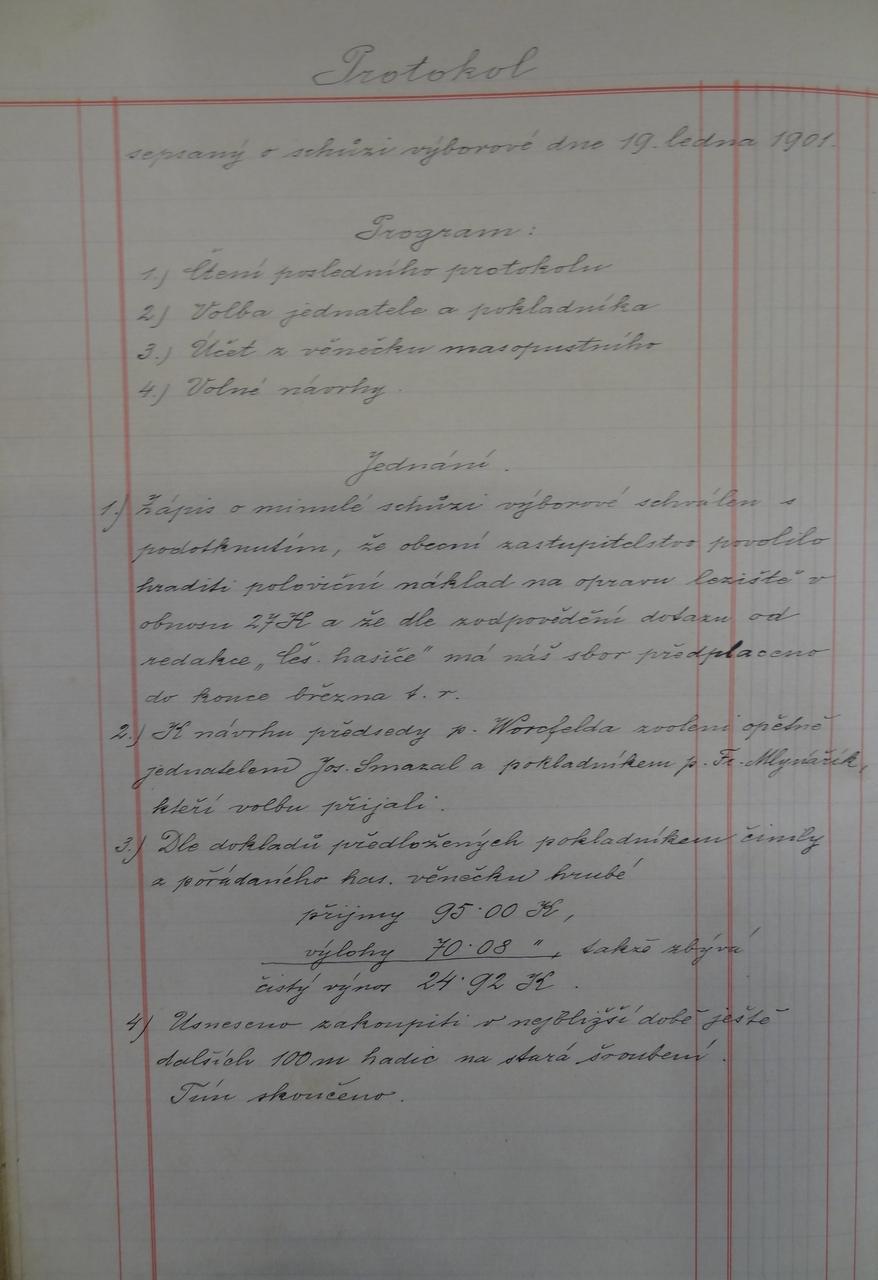 Protokol
sepsaný o schůzi výborové dne 19. ledna 1901.
Program:
1.) Čtení posledního protokolu
2.) Volba jednatele a pokladníka
3.) Účet z věnečku masopustního
4.) Volné návrhy.
Jednání.
1.) Zápis o minulé schůzi výborové schválen s
podotknutím, že obecní zastupitelstvo povolilo
hraditi poloviční náklad na opravu leziště v
obnosu 27 K a že dle zodpovědění dotazu od
redakce „čes. hasiče" má náš sbor předplaceno
do konce března t. r.
2.) K návrhu předsedy p. Worcfelda zvoleni opětně
jednatelem Jos. Smazal a pokladníkem p. Fr. Mlynářík,
kteří volbu přijali.
3.) Dle dokladů předložených pokladníkem činily
z pořádaného has. věnečku hrubé
příjmy 95·00 K,
výlohy 70·08 ", takže zbývá
čistý výnos 24·92 K.
4) Usneseno zakoupiti v nejbližší době ještě
dalších 100 m hadic na stará šroubení.
Tím skončeno.